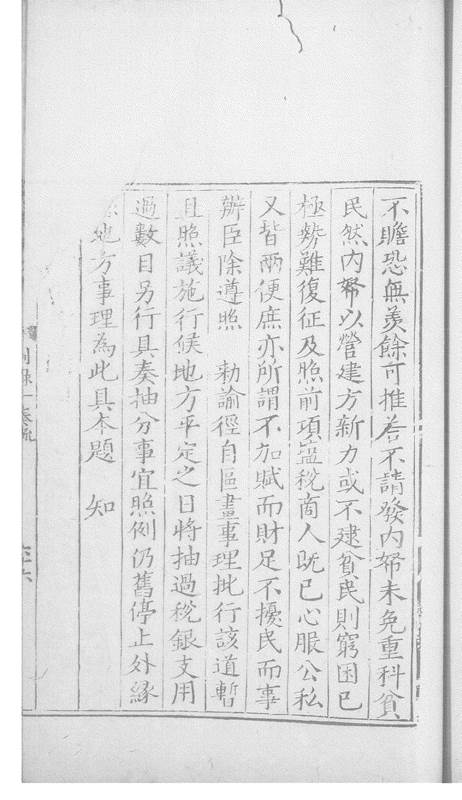 不贍恐無羨餘可推若不請發内帑未免重科貧
民然内帑以營建方新力或不逮貧民則窮困已
極勢難復征及照前項鹽稅商人既已心服公私
又皆兩便庶亦所謂不加賦而財足不擾民而事
辦臣除遵照 勅諭徑自區畫事理批行該道暫
且照議施行候地方平定之日將抽過稅銀支用
過數目另行具奏抽分事宜照例仍舊停止外緣
地方事理為此具本題 知
别録一奏疏